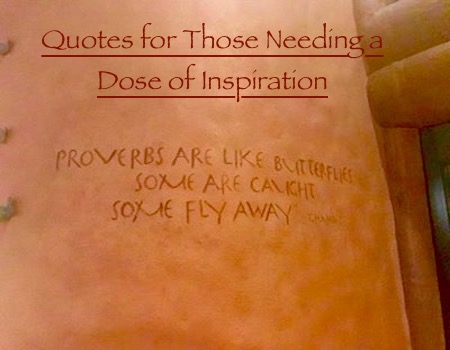 Quotes for Those Needing a
Dose of Inspiration
PROVERBS ARE LIKE BUTTERFLIES
SOME ARE CAUGHT
SOME FLY AWAY